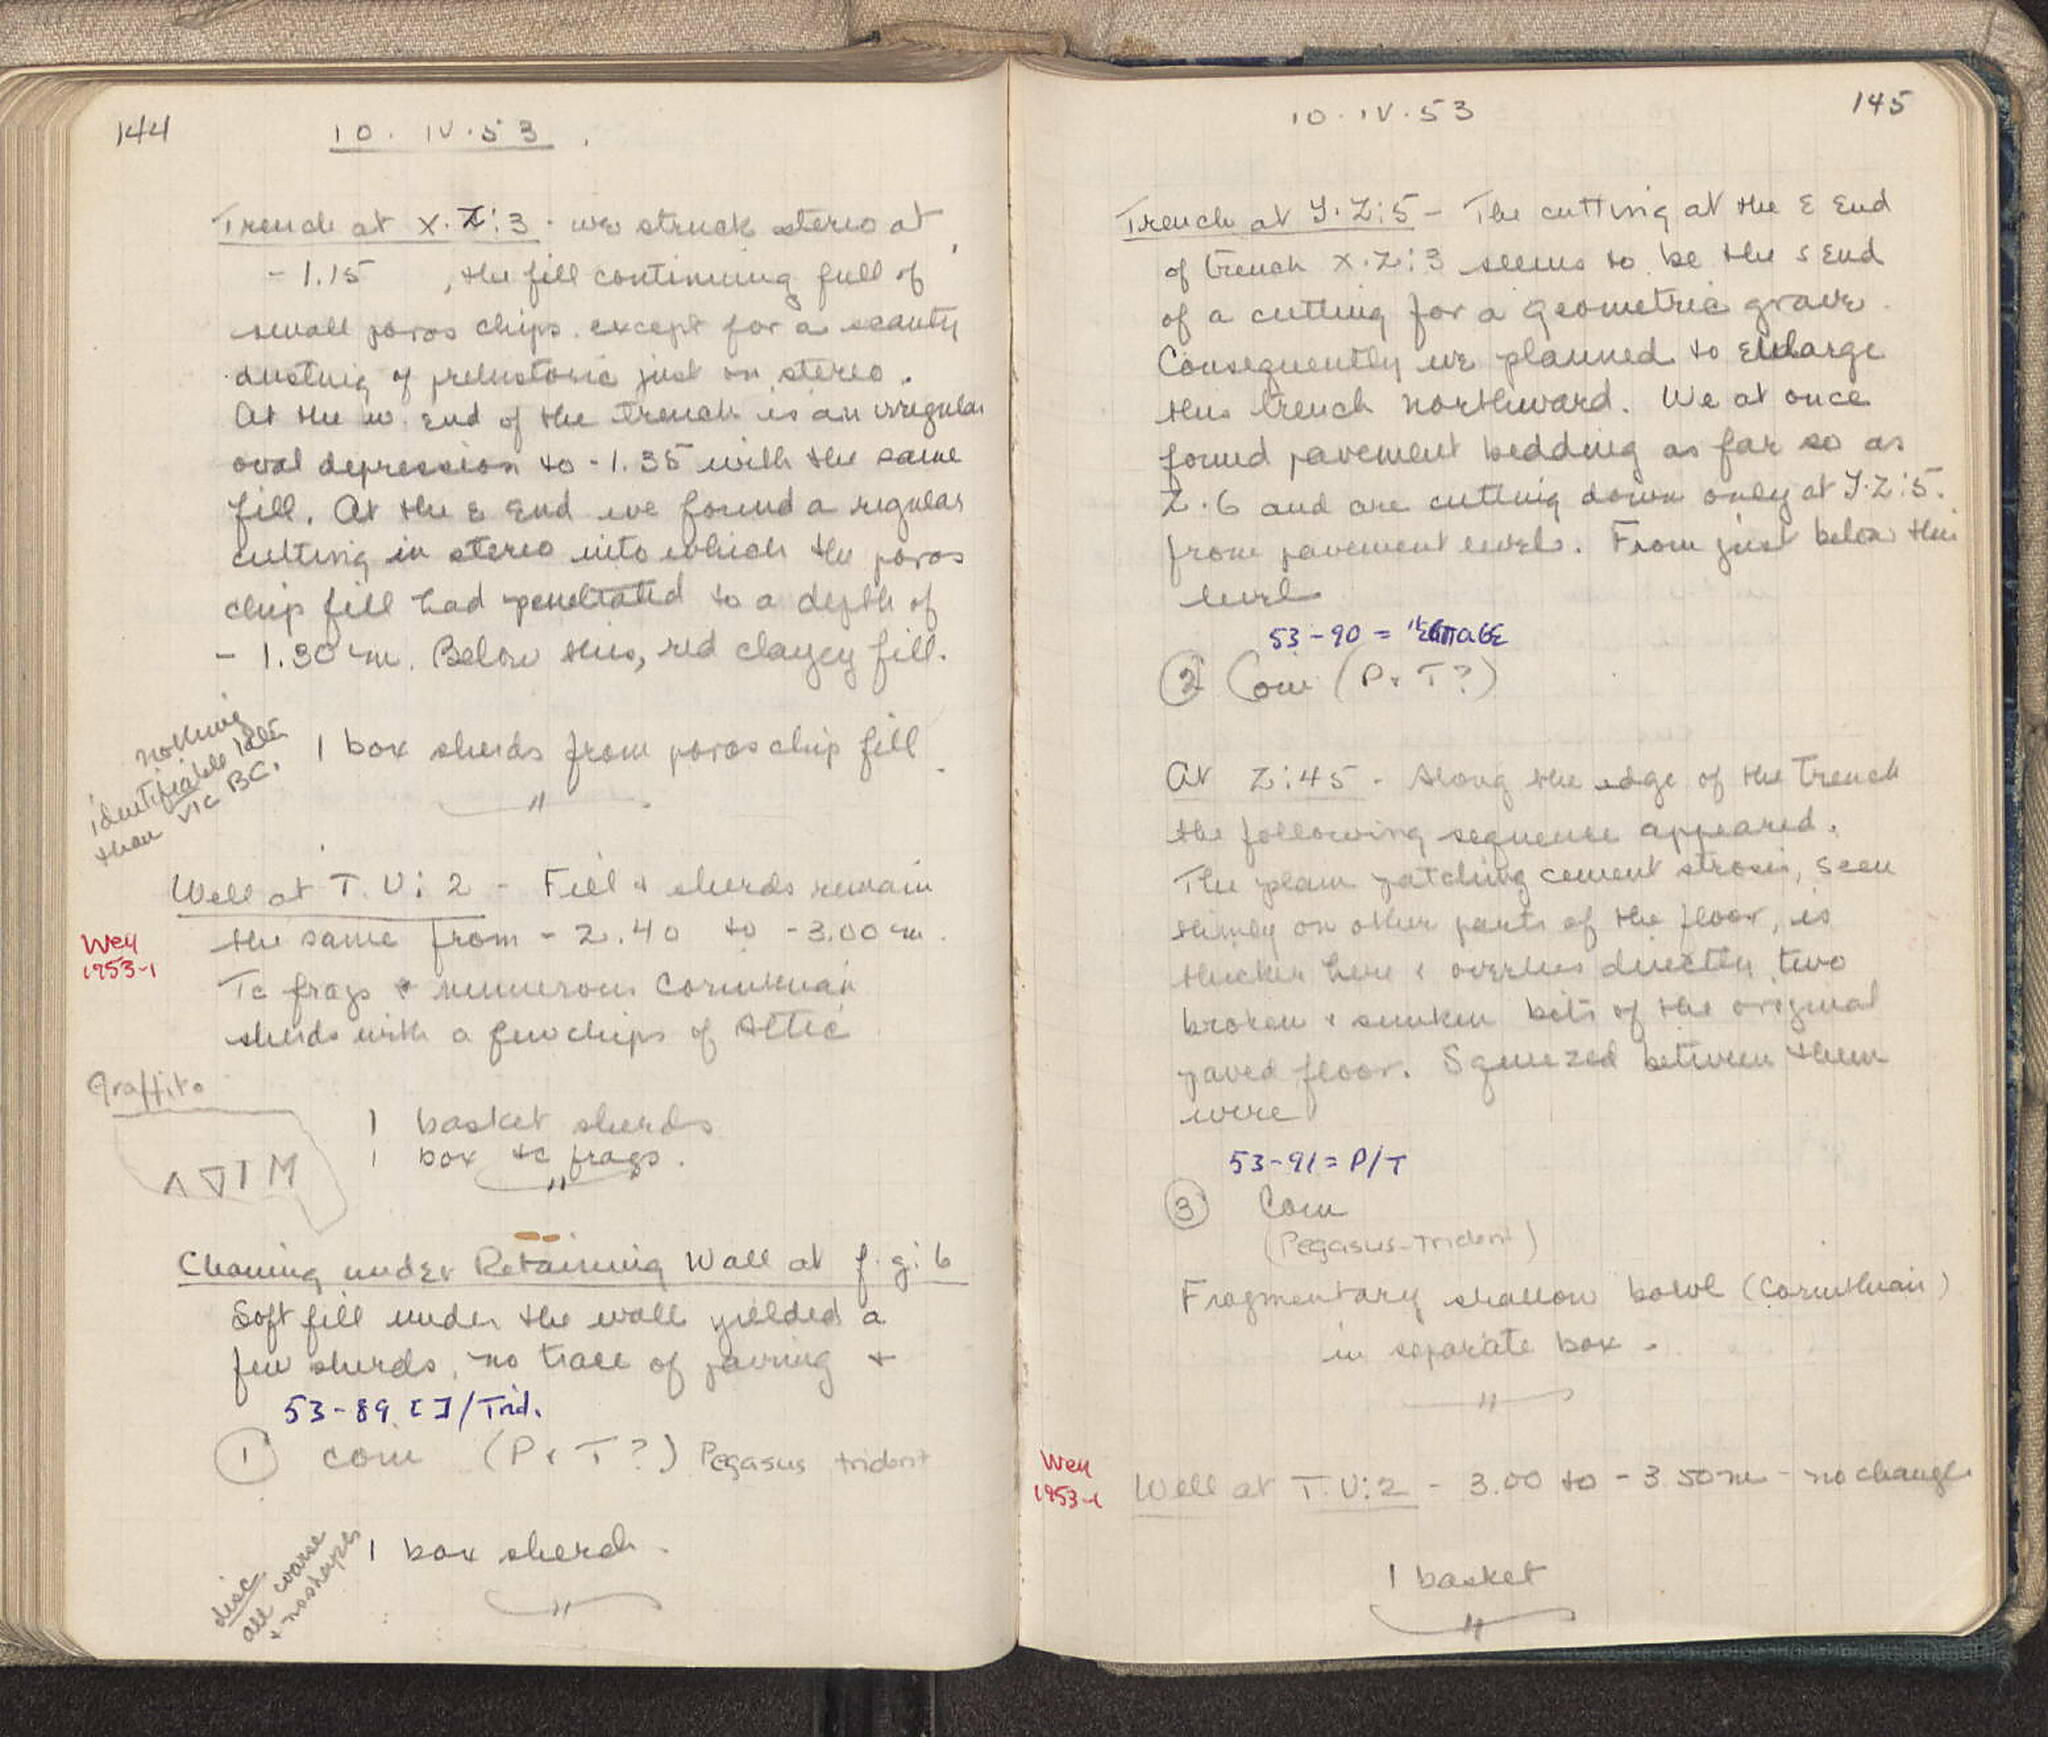 144
10. IV. 53.
Trench at X.Z:3 - we struck stereo at
- 1.15 , the fill continuing full of
small poros chips. except for a scanty
dusting of prehistoric just on stereo.
At the w. End of the trench is an irregular
oval depression to -1.35 with the same
fill. At the E End we found a regular
cutting in stereo into which the poros
chip fill had penetrated to a depth of
- 1.30 m. Below this, red clayey fill.
nothing
identifiable later
than VIc BC.
1 box sherds from poros chip fill.
"
Well at T.U:2 - Fill & sherds remain
Well
1953-1
the same from -2.40 to -3.00 m.
Tc frags & numerous Corinthian
sherds with a few chips of Attic
Graffito
1 basket sherds
1 box tc frags.
"
Λ ▽ I M
Cleaning under Retaining Wall at f.g:6
Soft fill under the wall yielded a
few sherds, no trace of paving +
53-89 [ ]/Trid.
1 coin (P & T?) Pegasus trident
1 box sherds.
"
disc
all coarse
+ no shapes
145
10. IV. 53
Trench at Y.Z:5 - The cutting at the E End
of trench X.Z:3 seems to be the S End
of a cutting for a Geometric grave.
Consequently we planned to Enlarge
this trench northward. We at once
found pavement bedding as far so as
Z.6 and are cutting down only at Y.Z:5.
from pavement level. From just below this
level
53-90 =
2 Coin (P & T?)
At Z:45 - Along the edge of the trench
the following sequence appeared.
The plain patching cement strosis, seen
thinly on other parts of the floor, is
thicker here & overlies directly two
broken & sunken bits of the original
paved floor. Squeezed between them
were
53-91 = P/T
3 Coin
(Pegasus-trident)
Fragmentary shallow bowl (Corinthian)
in separate box.
"
Well
1953-1
Well at T.U:2 - 3.00 to -3.50 m - no change
1 basket
"